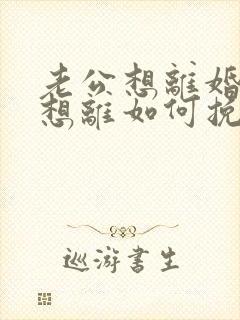 老公想離婚
想離如何挽
巡游書生